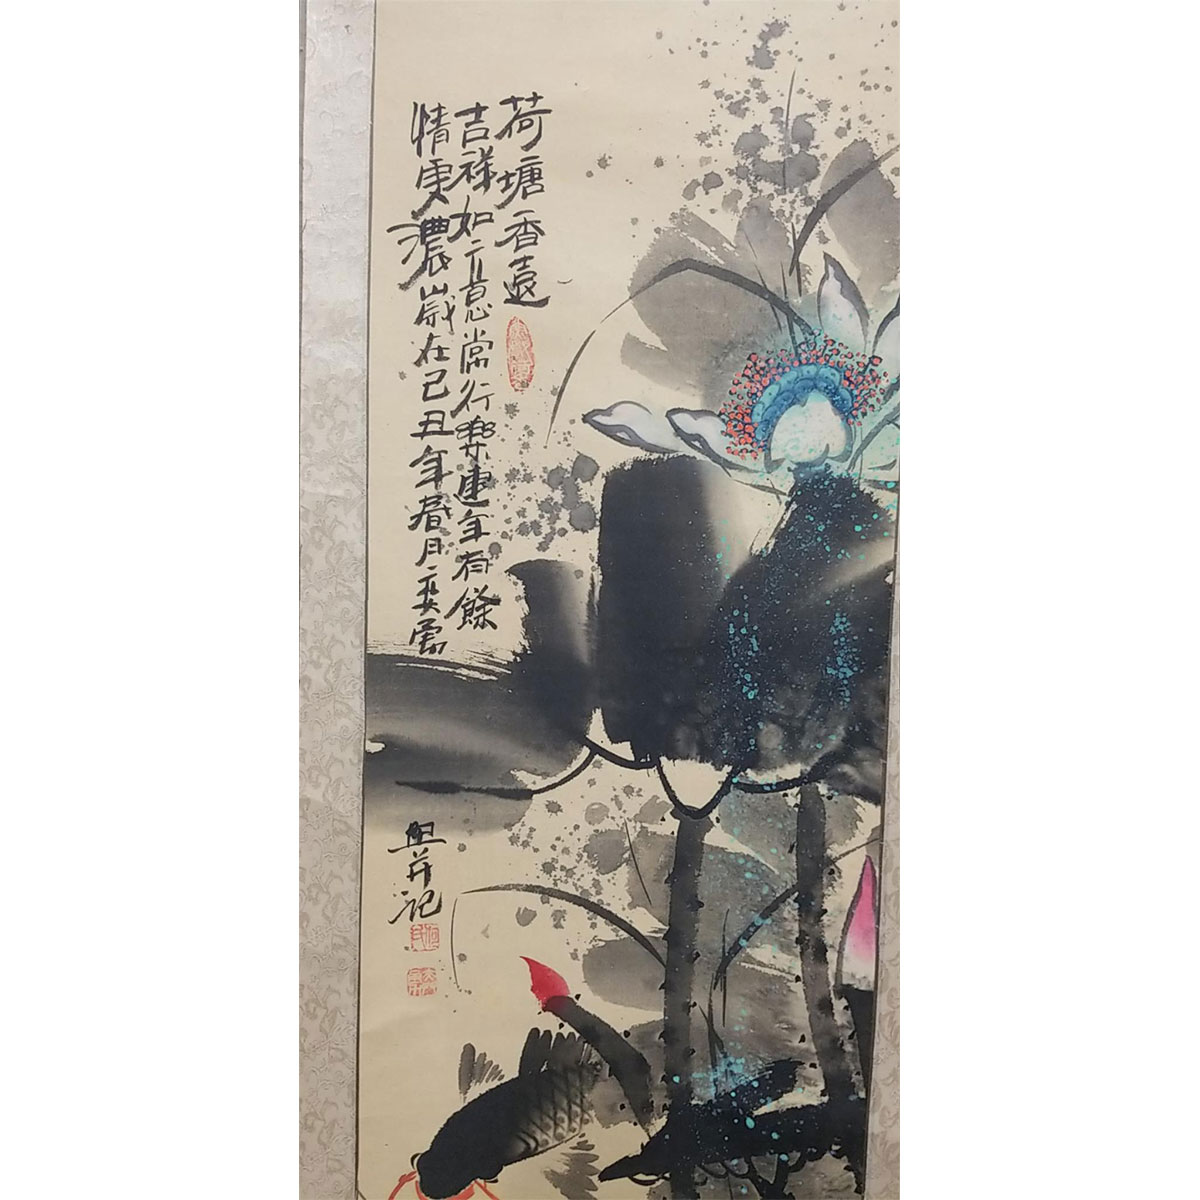 荷塘香遠
吉祥如意常行樂連年有餘
情更濃歲在己丑年春月
並記